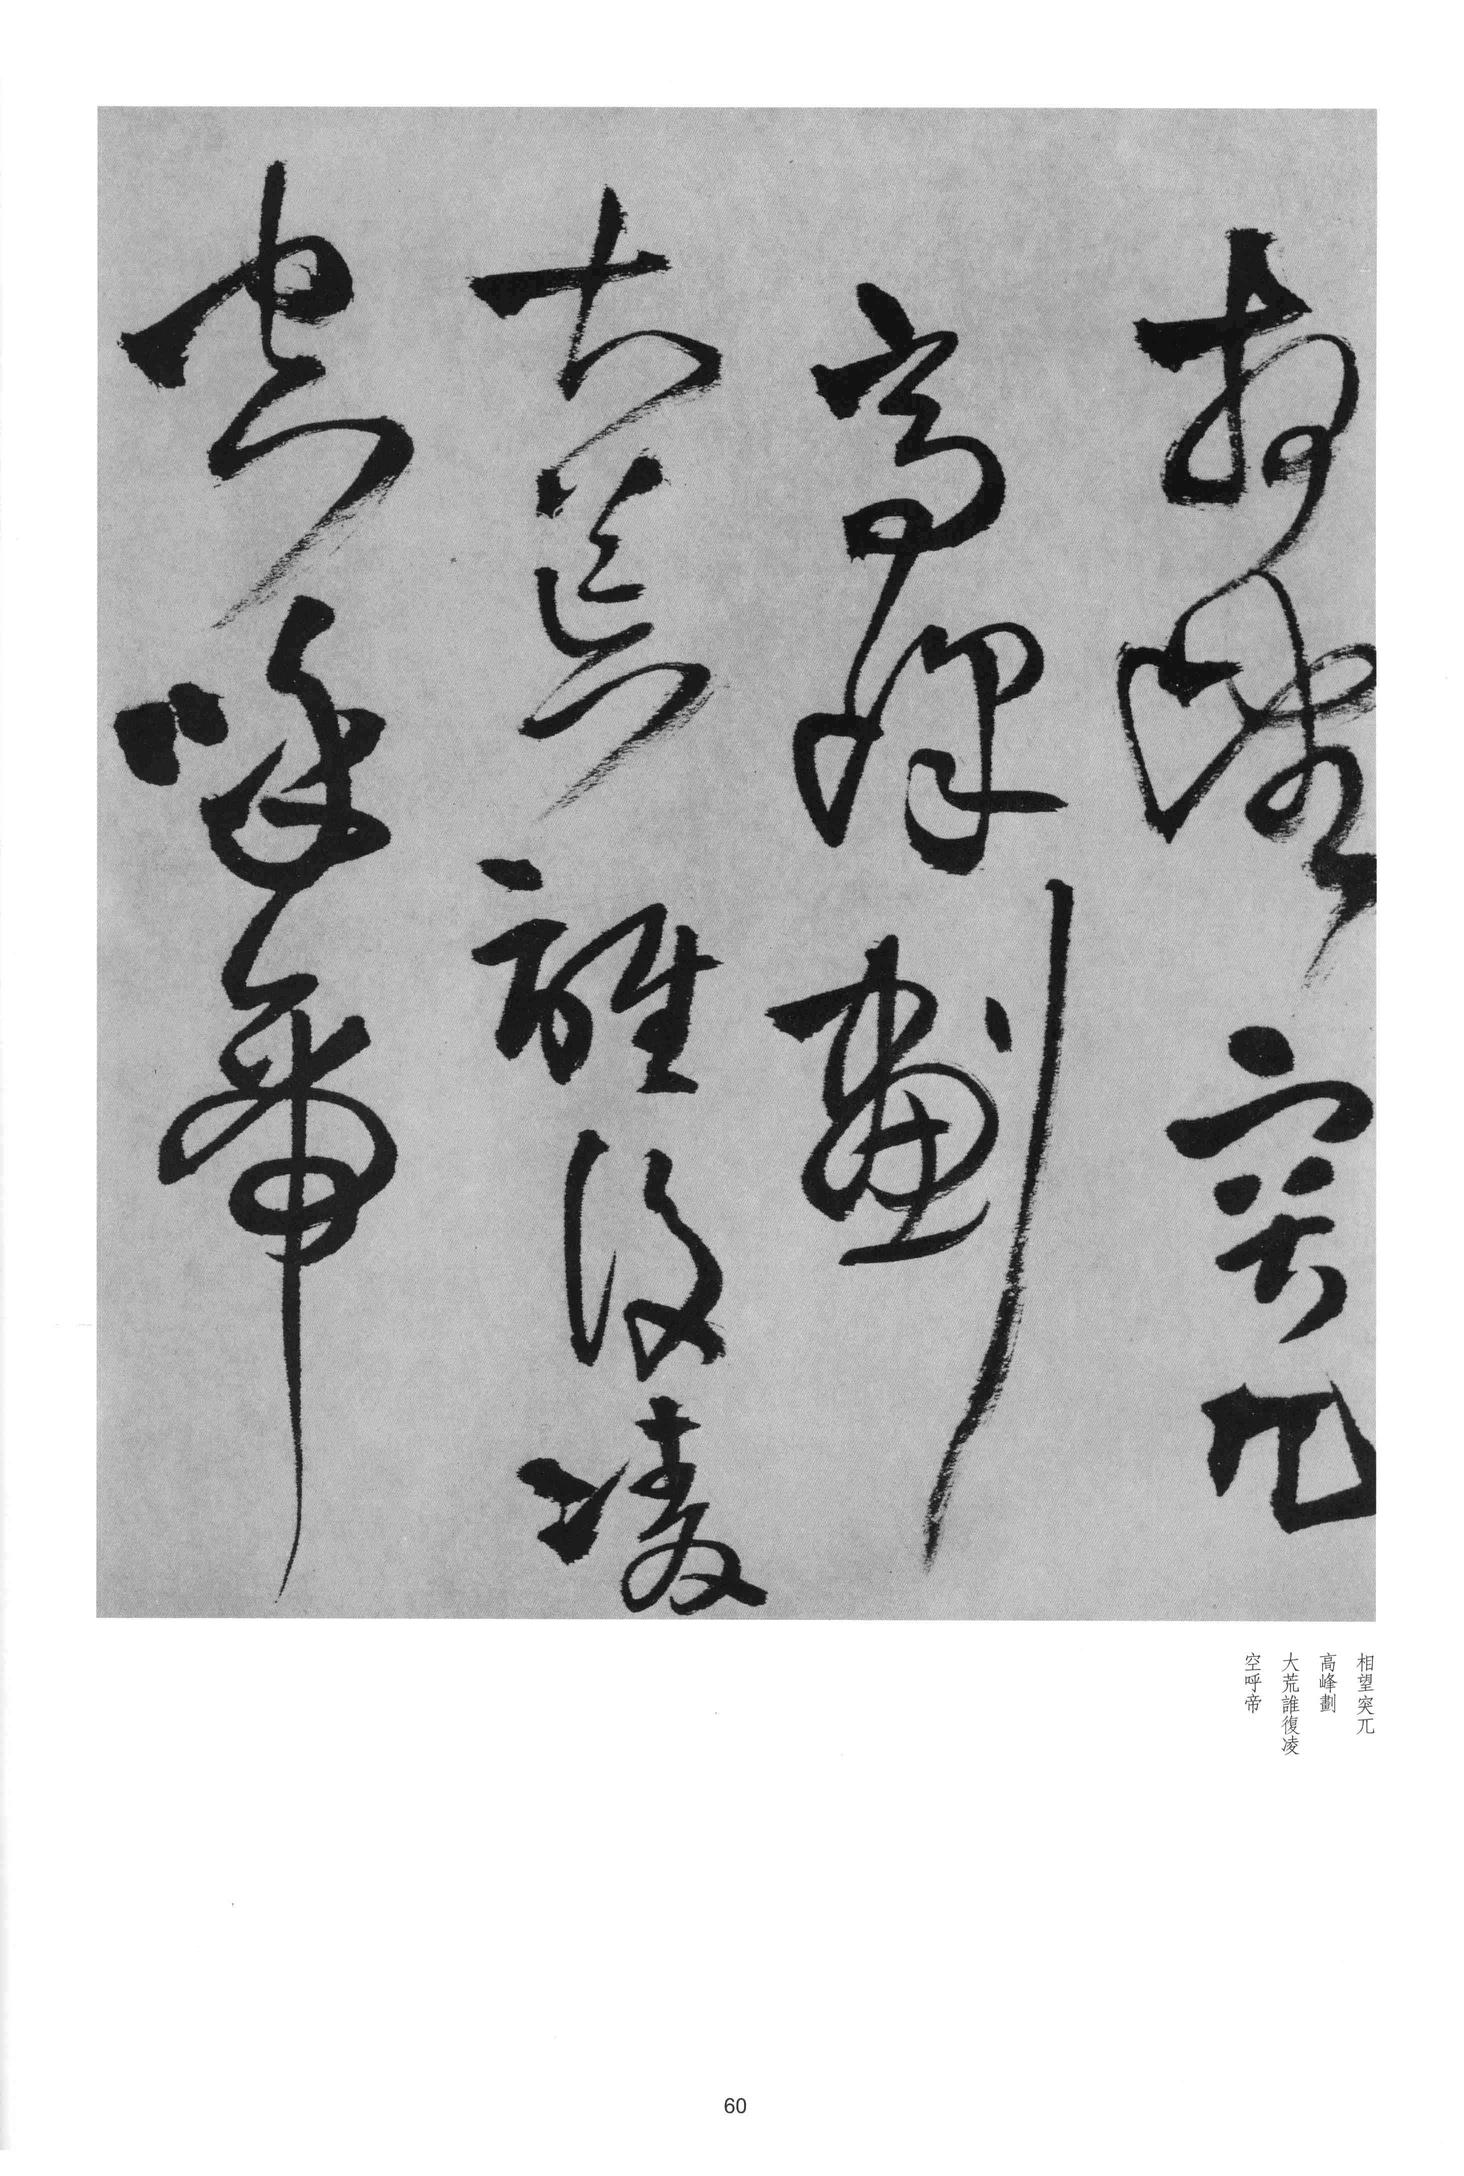 相望突兀
高峰劃
大荒誰復凌
空呼帝
相望突兀
高峰劃
大荒誰復凌
空呼帝
60